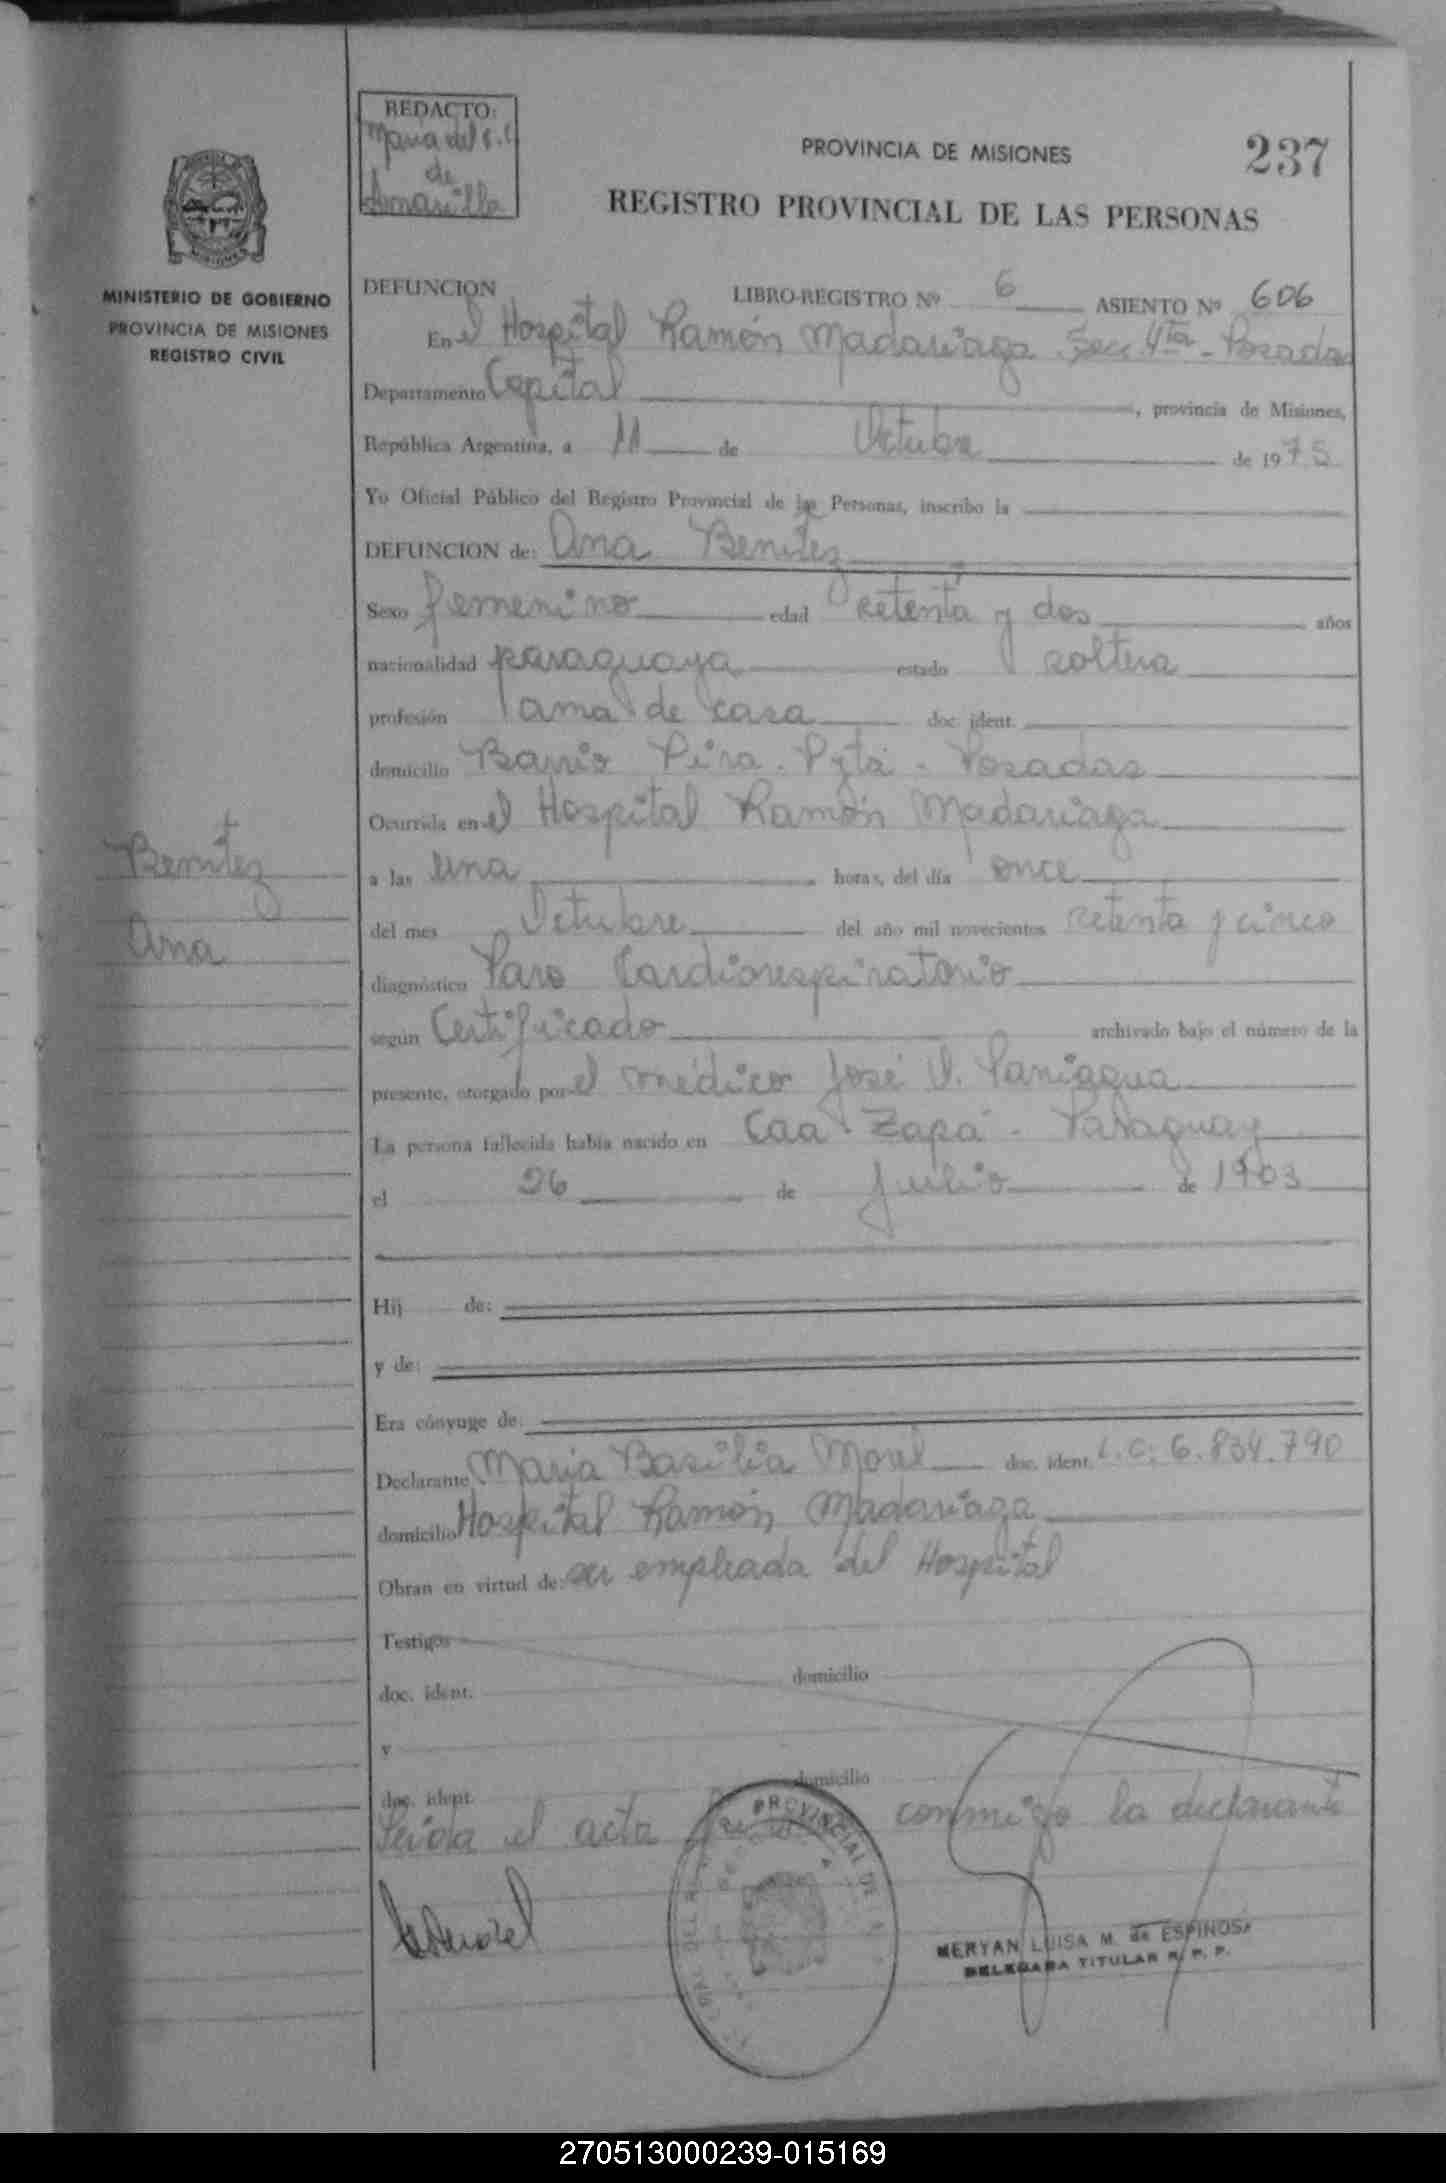 REDACTO:
Maria del S. C
de
Amarilla
PROVINCIA DE MISIONES
237
REGISTRO PROVINCIAL DE LAS PERSONAS
MINISTERIO DE GOBIERNO
PROVINCIA DE MISIONES
REGISTRO CIVIL
DEFUNCION LIBRO-REGISTRO Nº 6 ASIENTO Nº 606
En el Hospital Ramón Madariaga Sec 4ta - Posadas
Departamento Capital, provincia de Misiones,
República Argentina, a 11 de Octubre de 1975
Yo Oficial Público del Registro Provincial de las Personas, inscribo la
DEFUNCION de: Ana Benitez
Sexo femenino edad setenta y dos años
nacionalidad paraguaya estado soltera
profesión ama de casa doc. ident.
domicilio Barrio Pira-Pytá - Posadas
Ocurrida en el Hospital Ramón Madariaga
a las una horas, del día once
del mes Octubre del año mil novecientos setenta y cinco
diagnóstico Paro Cardiorespiratorio
según Certificado archivado bajo el número de la
presente, otorgado por el médico José V. Paniagua
La persona fallecida había nacido en Caa-Zapá - Paraguay
el 26 de Julio de 1903
Benitez
Ana
Hij de:
y de:
Era cónyuge de:
Declarante Maria Basilia Morel doc. ident. L.C: 6.834.790
domicilio Hospital Ramón Madariaga
Obran en virtud de: ser empleada del Hospital
Testigos
doc. ident. domicilio
y
doc. ident. domicilio
Leída el acta conmigo la declarante
PROVINCIAL DE
MERYAN LUISA M. de ESPINOSA
DELEGADA TITULAR R. P. P.
270513000239-015169